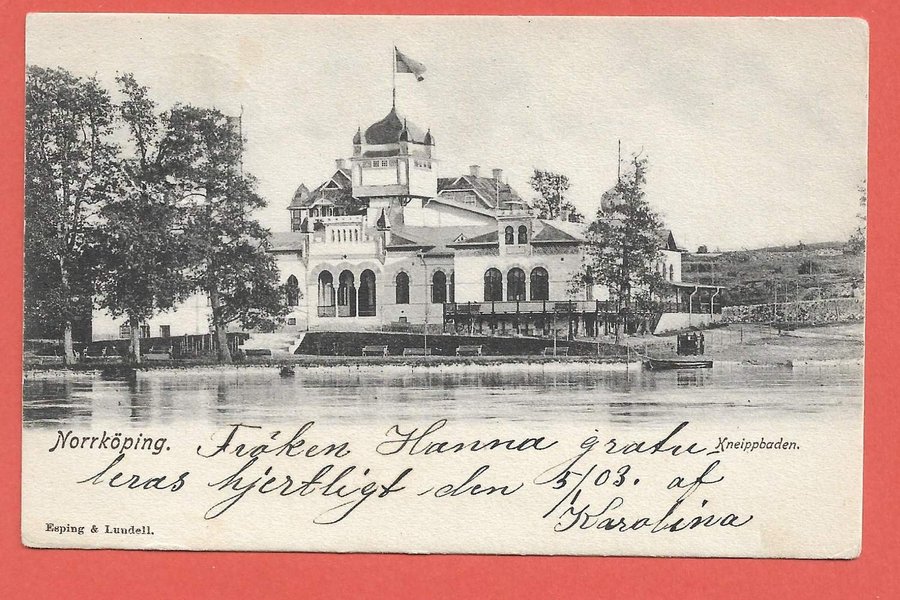 Norrköping.
Fröken Hanna gratu-
Kneippbaden.
leras hjertligt den 5/1 03. af
Karolina
Esping & Lundell.